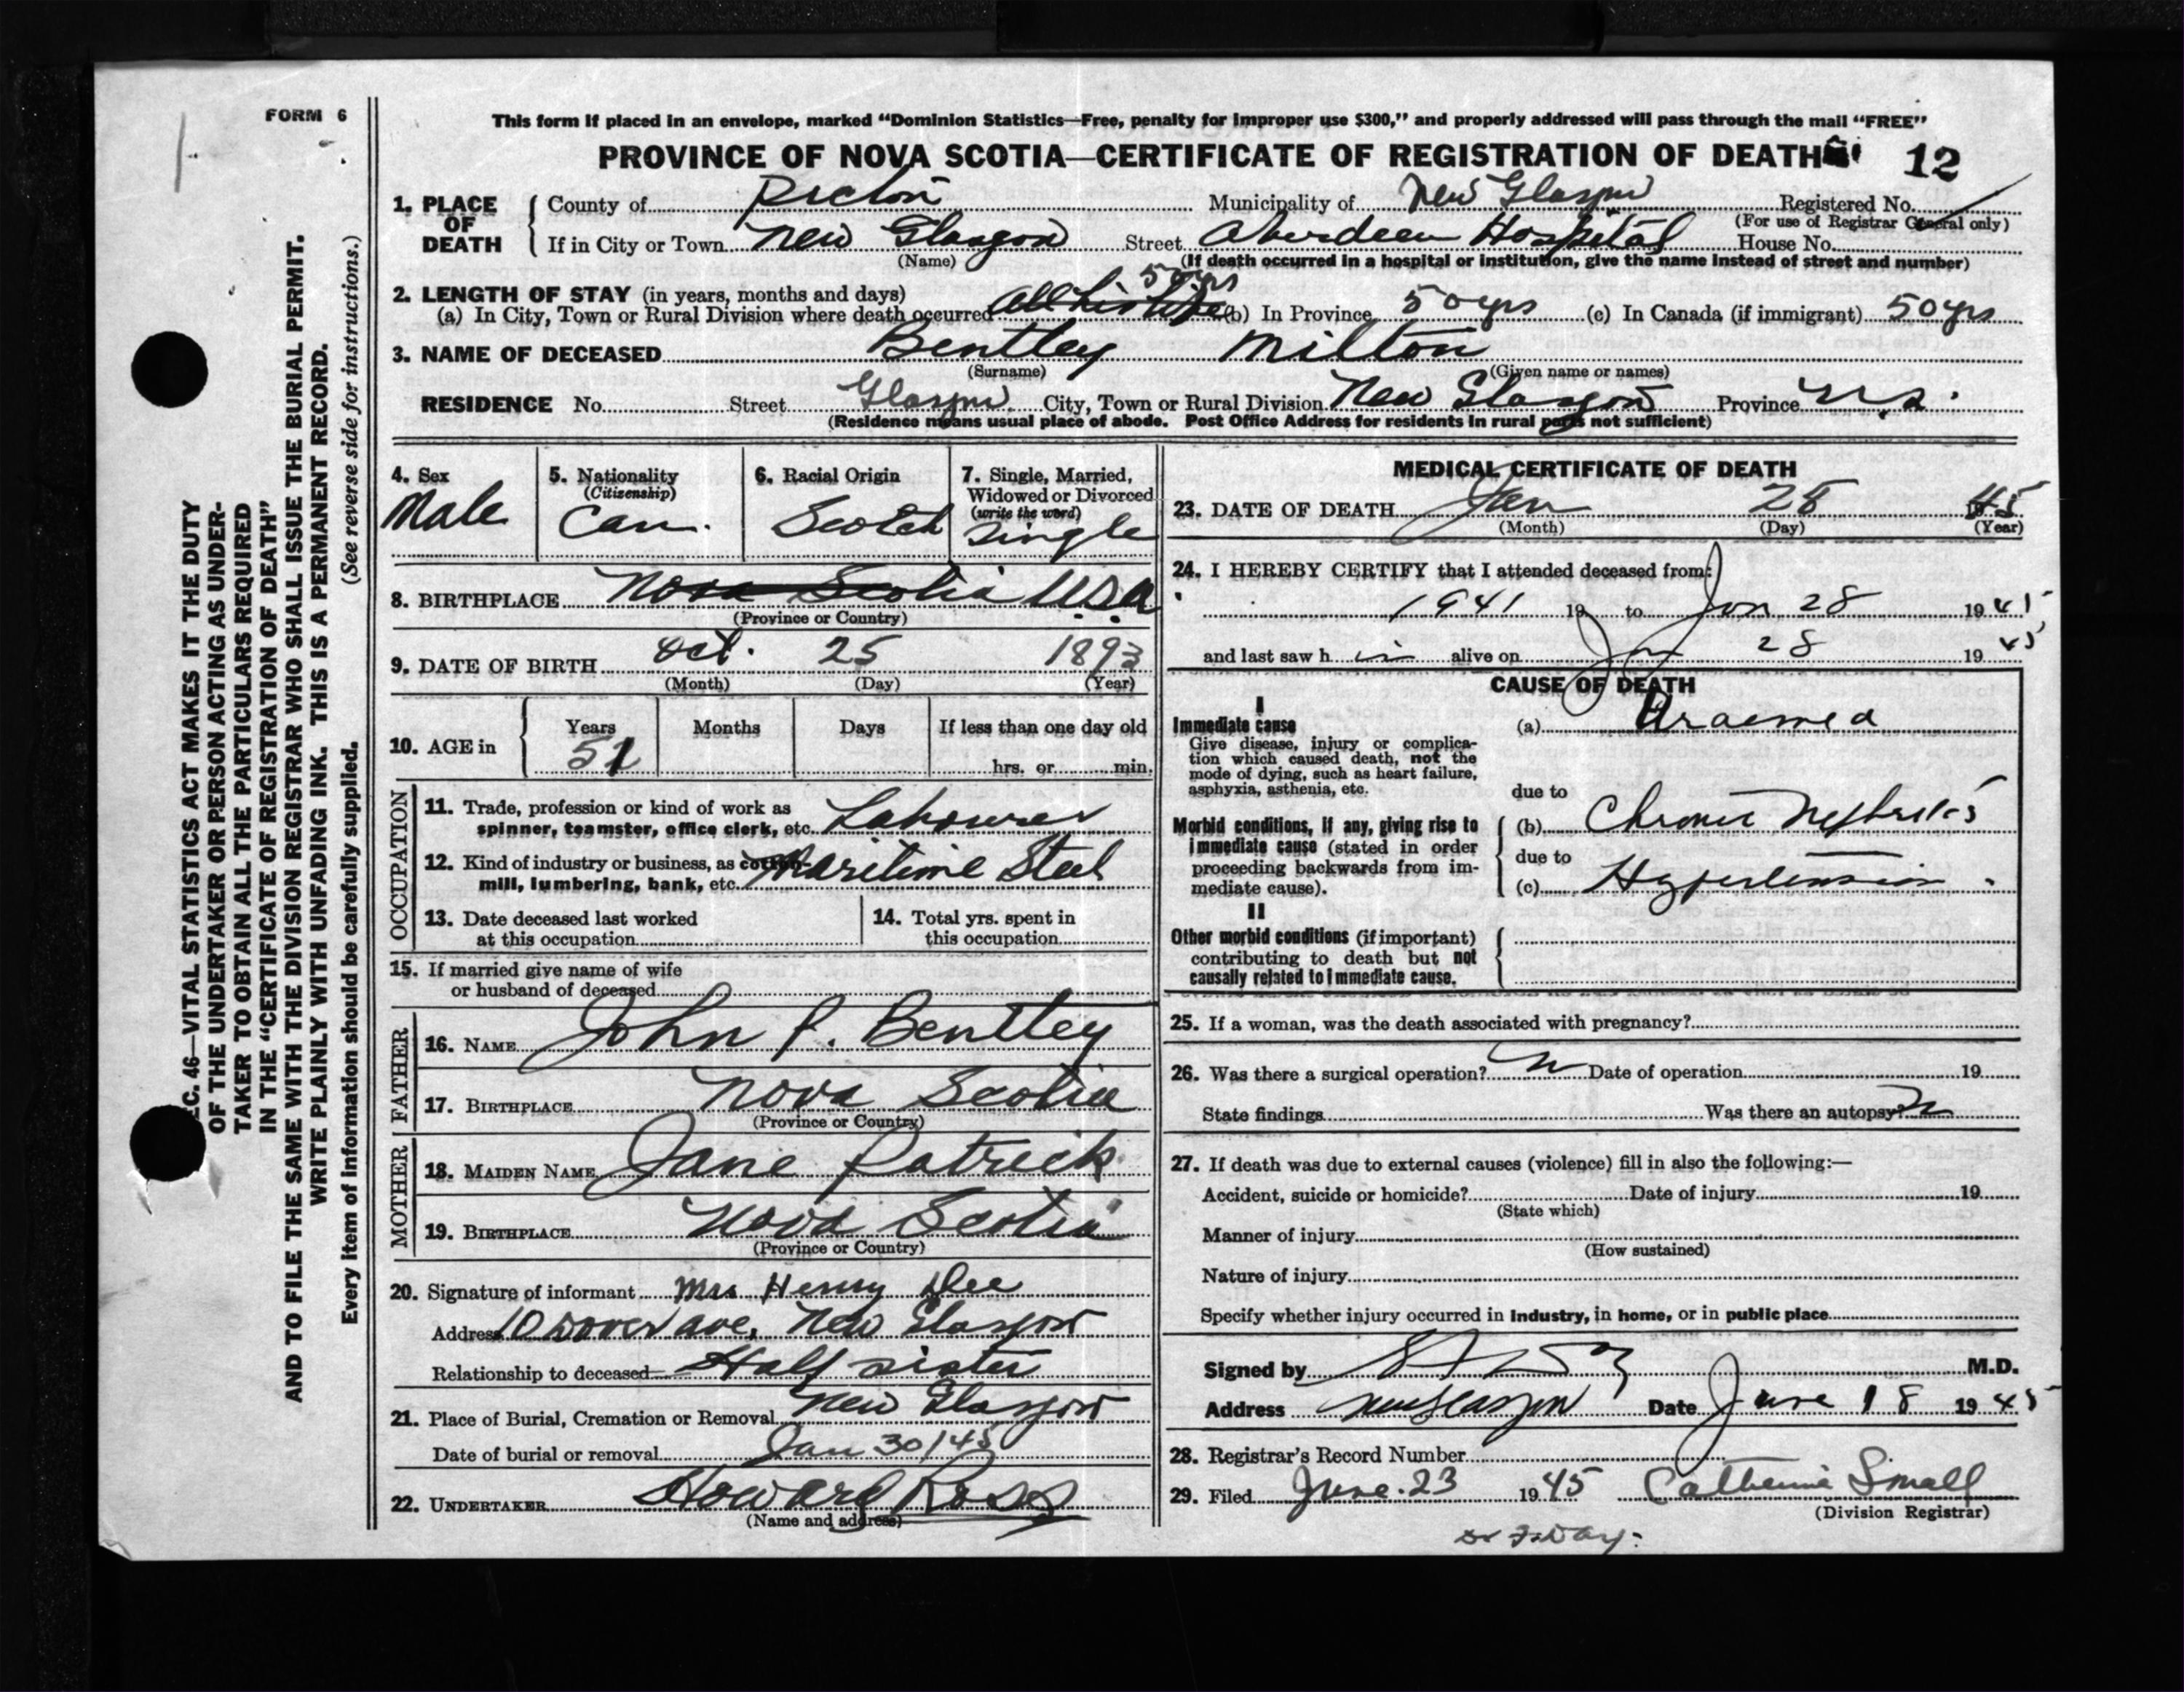 FORM 6
This form if placed in an envelope, marked "Dominion Statistics—Free, penalty for improper use $300," and properly addressed will pass through the mail "FREE"
PROVINCE OF NOVA SCOTIA—CERTIFICATE OF REGISTRATION OF DEATH 12
1. PLACE OF DEATH
County of Pictou Municipality of New Glasgow Registered No.
(For use of Registrar General only)
If in City or Town New Glasgow Street Aberdeen Hospital House No.
(Name) (If death occurred in a hospital or institution, give the name instead of street and number)
2. LENGTH OF STAY (in years, months and days) 50 yrs
(a) In City, Town or Rural Division where death occurred all his life (b) In Province 50 yrs (c) In Canada (if immigrant) 50 yrs
3. NAME OF DECEASED Bentley Milton
(Surname) (Given name or names)
RESIDENCE No. Street Glasgow City, Town or Rural Division New Glasgow Province N.S.
(Residence means usual place of abode. Post Office Address for residents in rural parts not sufficient)
4. Sex
Male
5. Nationality
(Citizenship)
Can.
6. Racial Origin
Scotch
7. Single, Married,
Widowed or Divorced
(write the word)
Single
8. BIRTHPLACE Nova Scotia U.S.A
(Province or Country)
9. DATE OF BIRTH Oct. 25 1893
(Month) (Day) (Year)
10. AGE in
Years Months Days If less than one day old
51 hrs. or min.
OCCUPATION
11. Trade, profession or kind of work as
spinner, teamster, office clerk, etc. Labourer
12. Kind of industry or business, as cotton-
mill, lumbering, bank, etc. Maritime Steel
13. Date deceased last worked
at this occupation
14. Total yrs. spent in
this occupation
15. If married give name of wife
or husband of deceased
FATHER
16. NAME John P. Bentley
17. BIRTHPLACE Nova Scotia
(Province or Country)
MOTHER
18. MAIDEN NAME Jane Patrick
19. BIRTHPLACE Nova Scotia
(Province or Country)
20. Signature of informant Mrs Henry Dee
Address 10 Dover ave, New Glasgow
Relationship to deceased Half sister
21. Place of Burial, Cremation or Removal New Glasgow
Date of burial or removal Jan 30/45
22. UNDERTAKER Howard Ross
(Name and address)
MEDICAL CERTIFICATE OF DEATH
23. DATE OF DEATH Jan 28 45
(Month) (Day) (Year)
24. I HEREBY CERTIFY that I attended deceased from:
1941 19 to Jan 28 1945
and last saw h im alive on Jan 28 19 45
CAUSE OF DEATH
I
Immediate cause
Give disease, injury or complica-
tion which caused death, not the
mode of dying, such as heart failure,
asphyxia, asthenia, etc.
(a) Uraemia
due to
Morbid conditions, if any, giving rise to
immediate cause (stated in order
proceeding backwards from im-
mediate cause).
(b) Chronic Nephritis
due to
(c) Hypertension
II
Other morbid conditions (if important)
contributing to death but not
causally related to immediate cause.
25. If a woman, was the death associated with pregnancy?
26. Was there a surgical operation? n Date of operation 19
State findings Was there an autopsy? n
27. If death was due to external causes (violence) fill in also the following:—
Accident, suicide or homicide? Date of injury 19
(State which)
Manner of injury
(How sustained)
Nature of injury
Specify whether injury occurred in industry, in home, or in public place
Signed by M.D.
Address New Glasgow Date June 18 1945
28. Registrar's Record Number
29. Filed June 23 1945 Catherine Small
(Division Registrar)
Dr F. Day.
EC. 46—VITAL STATISTICS ACT MAKES IT THE DUTY
OF THE UNDERTAKER OR PERSON ACTING AS UNDER-
TAKER TO OBTAIN ALL THE PARTICULARS REQUIRED
IN THE "CERTIFICATE OF REGISTRATION OF DEATH"
AND TO FILE THE SAME WITH THE DIVISION REGISTRAR WHO SHALL ISSUE THE BURIAL PERMIT.
WRITE PLAINLY WITH UNFADING INK. THIS IS A PERMANENT RECORD.
Every item of information should be carefully supplied. (See reverse side for instructions.)